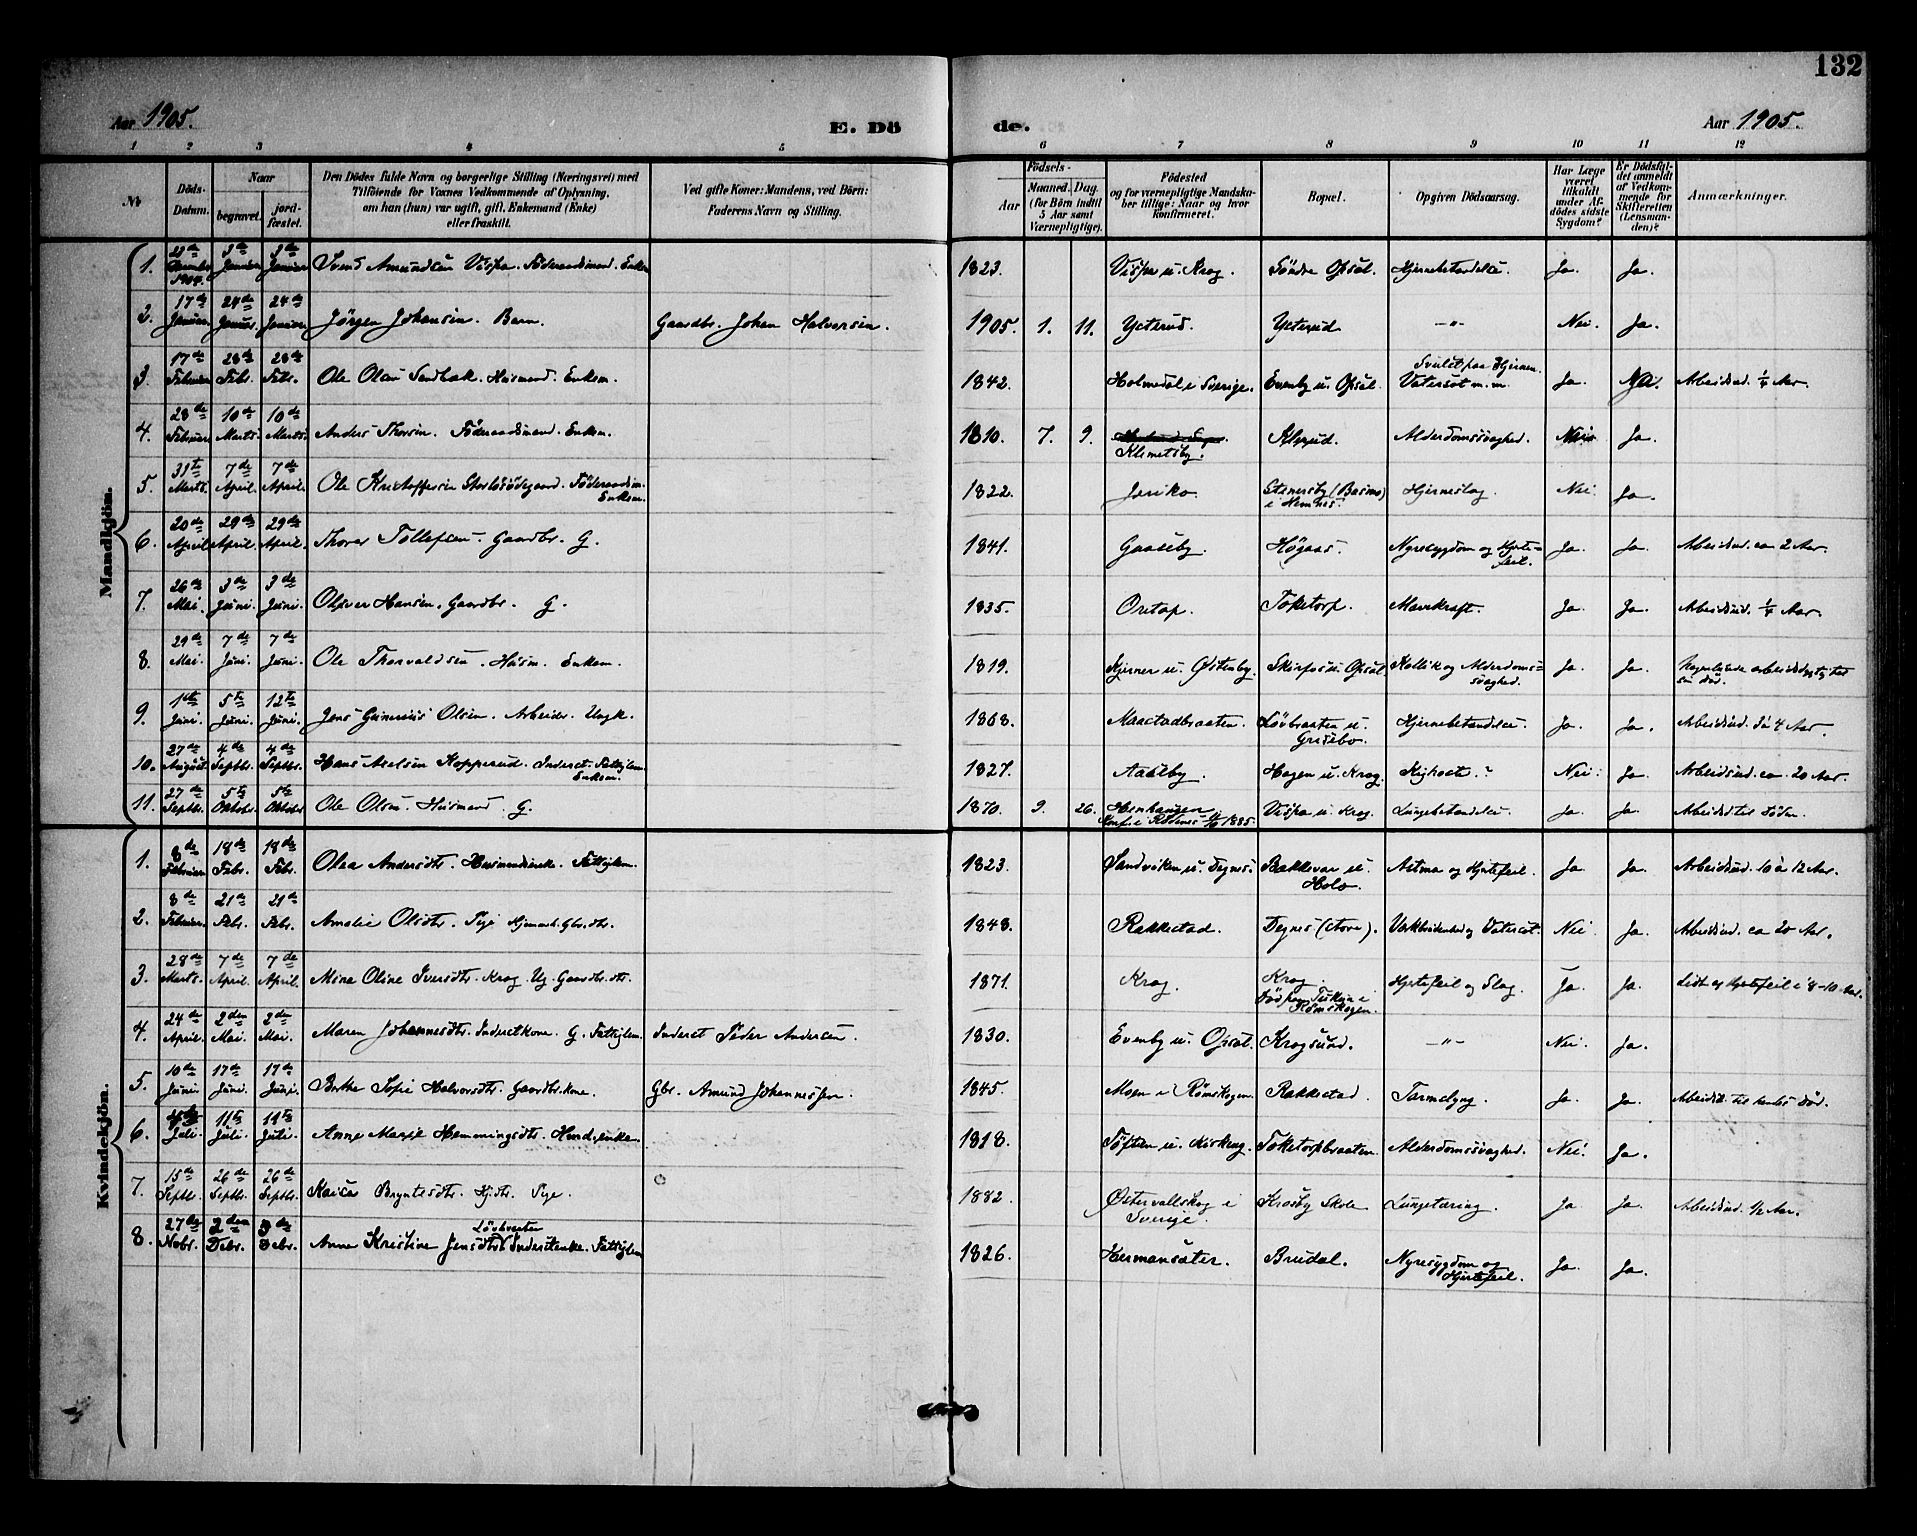 132
Aar 1905.
E. Dö
de.
Aar 1905.
1 2 3 4 5 6 7 8 9 10 11 12
№
Döds-
Datum.
Naar
begravet.
jord-
fæstet.
Den Dödes fulde Navn og borgerlige Stilling (Næringsvei) med
Tilföiende for Voxnes Vedkommende af Oplysning,
om han (hun) var ugift, gift, Enkemand (Enke)
eller fraskilt.
Ved gifte Koner: Mandens, ved Börn:
Faderens Navn og Stilling.
Födsels-
Aar
Maaned. Dag.
(for Börn indtil
5 Aar samt
Værnepligtige).
Födested
og for værnepligtige Mandska-
ber tillige: Naar og hvor
konfirmeret.
Bopæl.
Opgiven Dödsaarsag.
Har Læge
været
tilkaldt
under Af-
dödes sidste
Sygdom?
Er Dödsfal-
det anmeldt
af Vedkom-
mende for
Skifteretten
(Lensman-
den)?
Anmærkninger.
Mandkjön.
1. 23de Decembr 1904. 3de Januar 3de Januar Svend Amundsen Vispa. Föderaadsmand. Enkm 1823. Vispa u. Krog. Söndre Opsal. Hjernebetændelse. Ja. Ja.
2. 17de Januar 24de Januar. 24de Januar Jörgen Johansen. Barn. Gaardbr. Johan Halvorsen. 1905. 1. 11. Ycterud. Ycterud —"— Nei. Ja.
3. 17de Februar 28de Febr. 28de Febr. Ole Olsen Sandbæk. Husmand. Enkem. 1842. Holmedal i Sverige. Evenby u. Opsal. Svulst paa Hjernen. Vatersot m.m. Ja. Nei. Arbeidsud. 1/4 Aar.
4. 28de Februar 10de Marts. 10de Marts. Anders Thorsen. Föderaadsmand. Enkem. 1810. 7. 9. Klemetsby. Alerud. Alderdomssvaghed. Nei Ja.
5. 31te Marts. 7de April. 7de April. Ole Kristoffersen Storlösödegaard. Föderaadsm. Enkem. 1822. Jeriko. Stenersby (Basmo) i Hemnes. Hjerneslag. Nei Ja.
6. 20de April 29de April. 29de April. Thorer Tollefsen. Gaardbr. G. 1841. Gaaseby. Högaas. Nyresygdom og Hjerte- feil. Ja. Ja. Arbeidsud. ca 2 Aar.
7. 26de Mai. 3de Juni. 3de Juni. Oliver Hansen. Gaardbr. G. 1835. Ortop. Töketorp. Mavekræft. Ja. Ja. Arbeidsud. 1/4 Aar.
8. 29de Mai. 7de Juni. 7de Juni. Ole Thorvaldsen. Husm. Enkem. 1819. Kjerner u. Östenby. Skirfos u. Opsal. Kolik og Alderdoms- svaghed. Ja. Ja. Nogenlunde arbeidsdygtig til sin död.
9. 1ste Juni. 5te Juni. 12te Juni. Jens Gunerius Olsen. Arbeider. Ungk. 1868. Maastadbraaten. Lövbraaten u. Grisebo. Hjernebetændelse. Ja. Ja. Arbeidsud. 3 à 4 Aar.
10. 27de August. 4de Septbr. 4de Septbr. Hans Axelsen Kopperud. Inderst. Fattiglem. Enkem. 1827. Aaseby. Hagen u. Krog. Kighoste. ? Nei. Ja. Arbeidsud. ca. 20 Aar.
11. 27de Septbr. 5te Oktobr. 5te Oktobr. Ole Olsen. Husmand G. 1870. 9. 26. Henhaugen Konf. i Rödenes 1885. Vispa u. Krog. Lungebetændelse. Ja. Ja. Arbeidsd. til Döden.
Kvindekjön.
1. 8de Februar 18de Febr. 18de Febr. Olea Andersdtr. Husmandsenke. Fattiglem. 1823. Sandviken u. Degnes. Bakkevar u. Holo. Astma og Hjertefeil. Ja Ja. Arbeidsud. 10 à 12 Aar.
2. 8de Februar. 21de Febr. 21de Febr. Amalie Olsdtr. Pige Hjemmeh. Gbr. dtr. 1848. Rakkestad. Degnes (store). Vatersot. Nei Ja. Arbeidsud. ca 20 Aar.
3. 28de Marts. 7de April. 7de April. Mina Oline Iversdtr. Krog. Ug. Gaardbr. dtr. 1871. Krog. Krog. i Römskogen. Hjertefeil og Slag. Ja. Ja. Lidt af Hjertefeil i 8-10 Aar.
4. 24de April. 2den Mai. 2den Mai. Maren Johannesdtr. Inderstkone. G. Fattiglem. Inderst Peder Andersen. 1830. Evenby u. Opsal. Krogsund. —"— Nei. Ja.
5. 10de Juni 17de Juni. 17de Juni. Berthe Sofie Halvorsdtr. Gaardbr. kone. Gbr. Amund Johannessen. 1845. Moen i Römskogen. Rakkestad. Tarmslyng. Ja. Ja. Arbeidsd. til hendes död.
6. Juli. 11te Juli. 11te Juli. Anne Marie Hemmingsdtr. Husm.enke. 1818. Töften u. Kirkeng. Töketorpbraaten. Alderdomssvaghed. Nei. Ja.
7. 15de Septbr. 26de Septbr. 26de Septbr. Kaisa Bryntesdtr. Hjdtr. Pige. 1882. Östervallskog i Sverige. Krosby Skole. Lungetæring. Ja Ja. Arbeidsud. 1/2 Aar.
8. 27de Nobr. 2den Debr. 3de Debr. Anne Kristine Jensdtr. Lövbraaten Inderstenke. Fattiglem 1826. Hermansæter. Brudal. Nyresygdom og Hjertefeil. Ja. Ja.